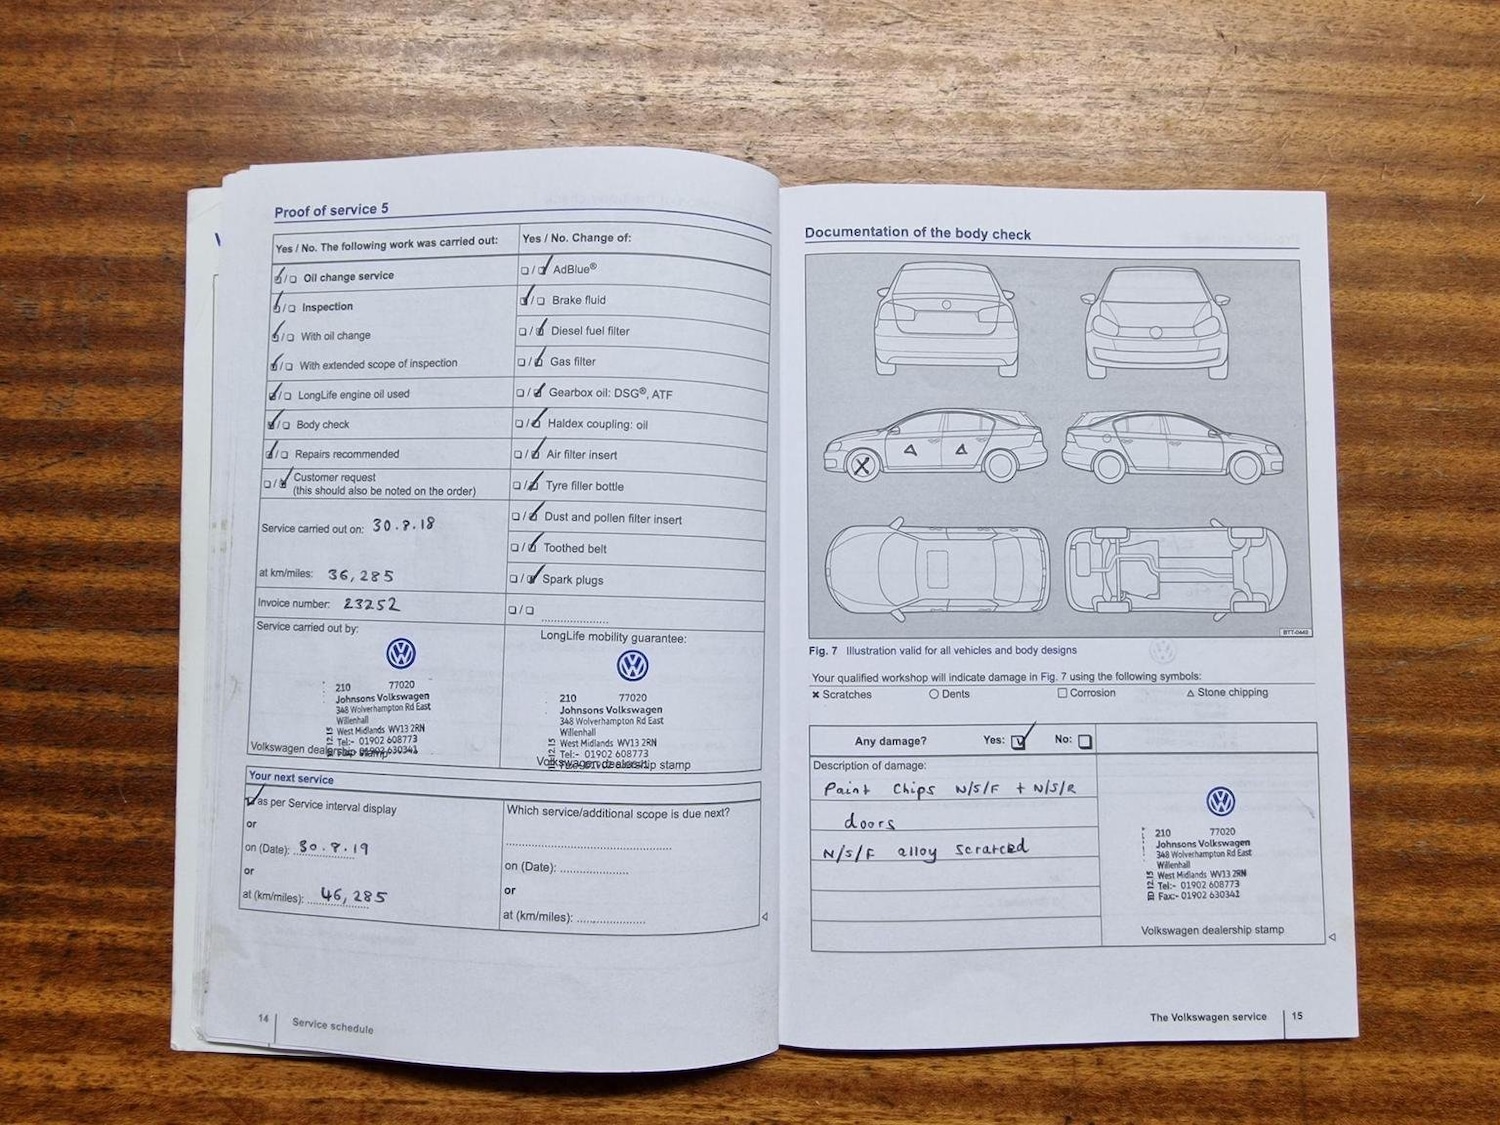 Proof of service 5
Yes / No. The following work was carried out:
Oil change service
Inspection
With oil change
With extended scope of inspection
LongLife engine oil used
Body check
Repairs recommended
Customer request
(this should also be noted on the order)
Service carried out on: 30.8.18
at km/miles: 36,285
Invoice number: 23252
Service carried out by:
210 77020
Johnsons Volkswagen
348 Wolverhampton Rd East
Willenhall
West Midlands WV13 2RN
Tel:- 01902 608773
Fax:- 01902 630341
Volkswagen dealership stamp
Yes / No. Change of:
AdBlue®
Brake fluid
Diesel fuel filter
Gas filter
Gearbox oil: DSG®, ATF
Haldex coupling: oil
Air filter insert
Tyre filler bottle
Dust and pollen filter insert
Toothed belt
Spark plugs
LongLife mobility guarantee:
210 77020
Johnsons Volkswagen
348 Wolverhampton Rd East
Willenhall
West Midlands WV13 2RN
Tel:- 01902 608773
Volkswagen dealership stamp
Your next service
as per Service interval display
or
on (Date): 30.8.19
or
at (km/miles): 46,285
Which service/additional scope is due next?
on (Date):
or
at (km/miles):
14 Service schedule
Documentation of the body check
BTT-0440
Fig. 7 Illustration valid for all vehicles and body designs
Your qualified workshop will indicate damage in Fig. 7 using the following symbols:
Scratches Dents Corrosion Stone chipping
Any damage? Yes: No:
Description of damage:
Paint Chips N/S/F + N/S/R
doors
N/S/F alloy scratched
210 77020
Johnsons Volkswagen
348 Wolverhampton Rd East
Willenhall
West Midlands WV13 2RN
Tel:- 01902 608773
Fax:- 01902 630341
Volkswagen dealership stamp
The Volkswagen service 15